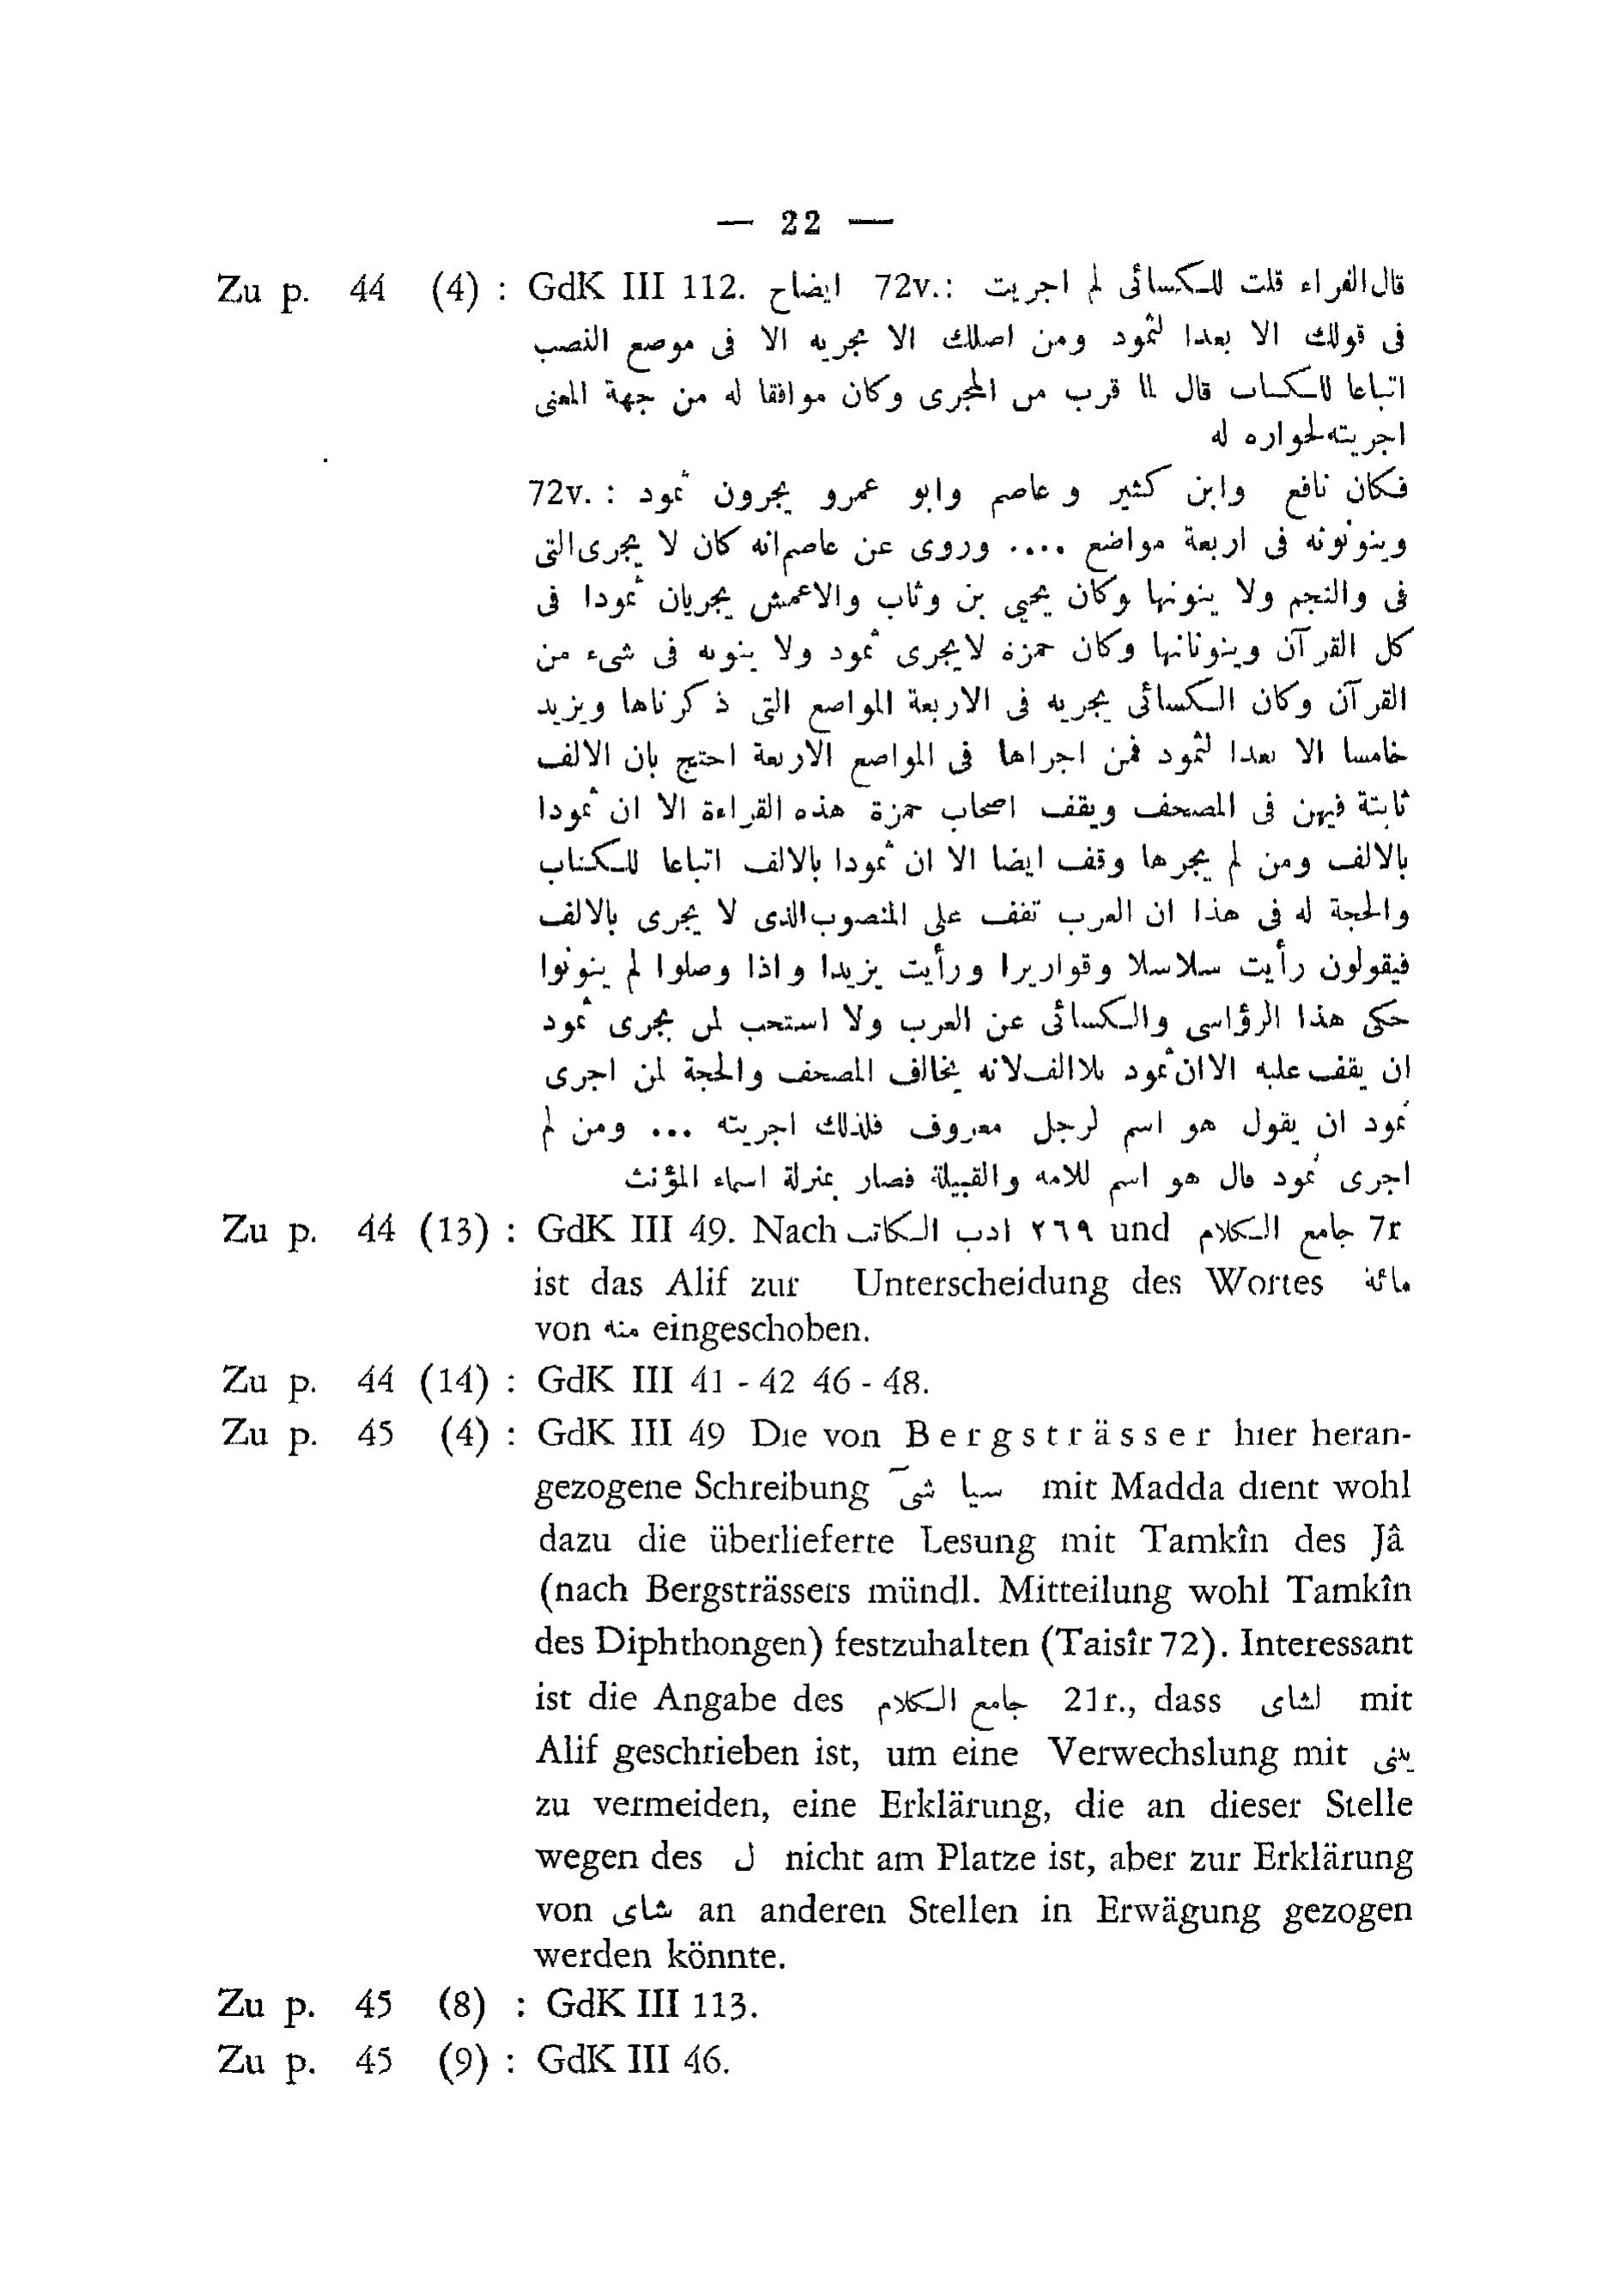 — 22 —
Zu p. 44 (4) : GdK III 112. ايضاح 72v.: قال الفراء قلت للكسائى لم اجريت
فى قولك الا بعدا لثمود ومن اصلك الا مجريه الا فى موصع النصب
اتباعا للكساب قال لما قرب من المجرى وكان موافقا له من جهة المعنى
اجريته لحواره له
72v. : فكان نافع وابن كثير و عاصم وابو عمرو يجرون ثمود
وينونونه فى اربعة مواضع .... وروى عن عاصم انه كان لا يجرى التى
فى والنجم ولا ينونها وكان يحيى بن وثاب والاعمش يجريان ثمودا فى
كل القرآن وينونانها وكان حمزة لا يجرى ثمود ولا ينونه فى شىء من
القرآن وكان الكسائى يجريه فى الاربعة المواصع التى ذكرناها ويزيد
خامسا الا بعدا لثمود فمن اجراها فى المواصع الاربعة احتج بان الالف
ثابتة فيهن فى المصحف ويقف اصحاب حمزة هذه القراءة الا ان ثمودا
بالالف ومن لم يجرها وقف ايضا الا ان ثمودا بالالف اتباعا للكتاب
والحجة له فى هذا ان العرب تقف على المنصوب الذى لا يجرى بالالف
فيقولون رأيت سلاسلا وقواريرا ورأيت يزيدا واذا وصلوا لم ينونوا
حكى هذا الرؤاسى والكسائى عن العرب ولا استحب لمن يجرى ثمود
ان يقف عليه الا ان ثمود بلا الف لانه يخالف المصحف والحجة لمن اجرى
ثمود ان يقول هو اسم لرجل معروف فلذلك اجريته ... ومن لم
اجرى ثمود قال هو اسم للامه والقبيلة فصار بمنزلة اسماء المؤنث
Zu p. 44 (13) : GdK III 49. Nach ادب الكاتب ٢٦٩ und جامع الكلام 7r
ist das Alif zur Unterscheidung des Wortes مائة
von منه eingeschoben.
Zu p. 44 (14) : GdK III 41 - 42 46 - 48.
Zu p. 45 (4) : GdK III 49 Die von Bergsträsser hier heran-
gezogene Schreibung سيا شىٓ mit Madda dient wohl
dazu die überlieferte Lesung mit Tamkîn des Jâ
(nach Bergsträssers mündl. Mitteilung wohl Tamkîn
des Diphthongen) festzuhalten (Taisîr 72). Interessant
ist die Angabe des جامع الكلام 21r., dass لشاى mit
Alif geschrieben ist, um eine Verwechslung mit
zu vermeiden, eine Erklärung, die an dieser Stelle
wegen des ل nicht am Platze ist, aber zur Erklärung
von شاى an anderen Stellen in Erwägung gezogen
werden könnte.
Zu p. 45 (8) : GdK III 113.
Zu p. 45 (9) : GdK III 46.